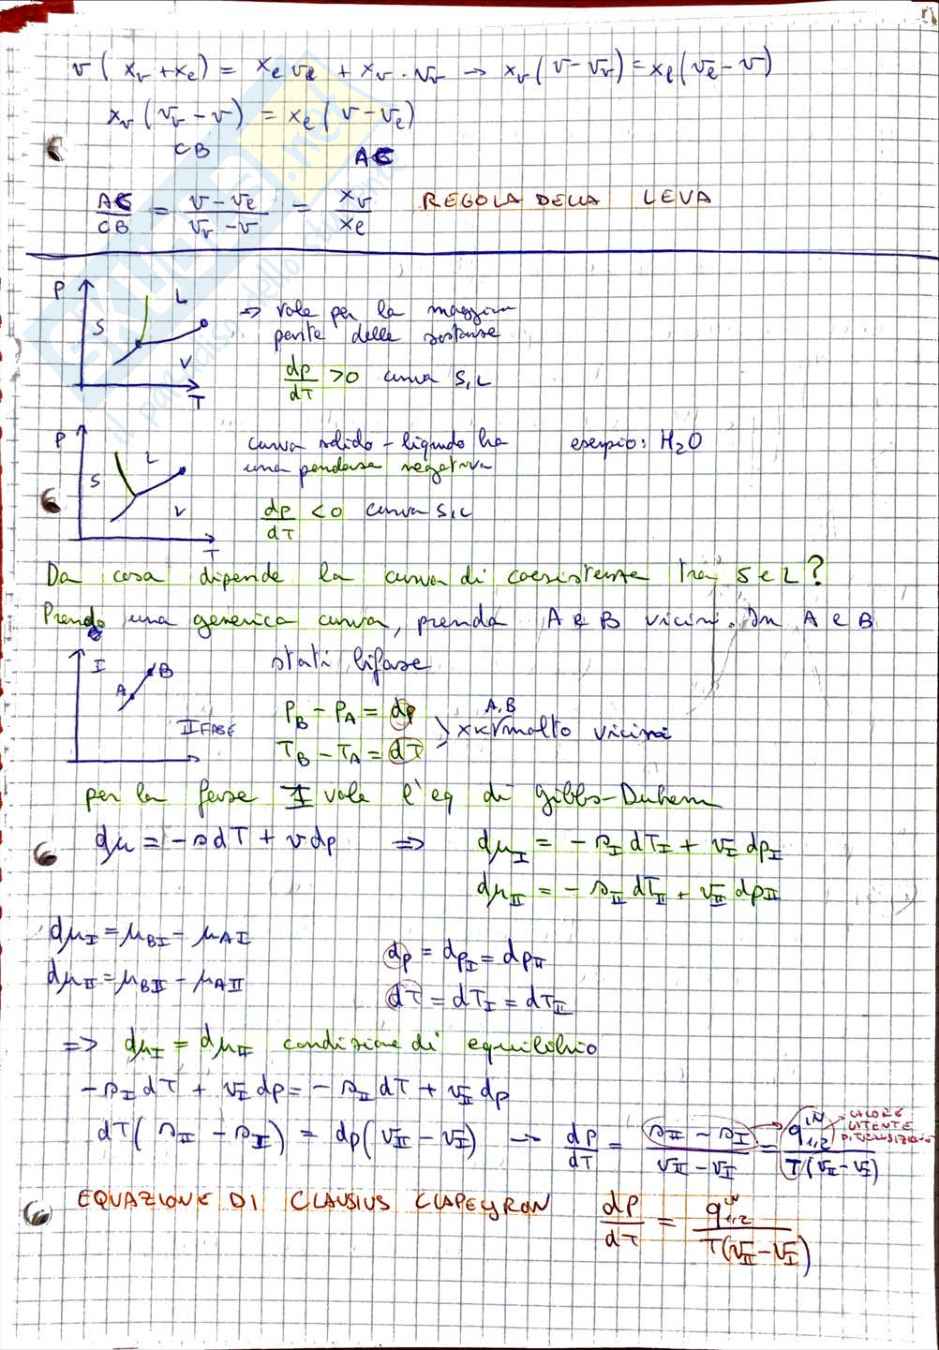 v ( xv + xe ) = xe ve + xv · vv → xv ( v - vv ) = xe ( ve - v )
xv ( vv - v ) = xe ( v - ve )
CB AC
AC/CB = (v - ve)/(vv - v) = xv/xe REGOLA DELLA LEVA
P S L V T
⇒ vale per la maggior
parte delle sostanze
dp/dT > 0 curva S,L
P S L V T
curva solido - liquido ha esempio: H2O
una pendenza negativa
dp/dT < 0 curva S,L
Da cosa dipende la curva di coesistenza tra S e L?
Prendo una generica curva, prendo A e B vicini. In A e B
stati bifase
I A B II FASE
PB - PA = dp
TB - TA = dT
A,B molto vicini
per la fase I vale l'eq di Gibbs-Duhem
dμ = - s dT + v dp ⇒ dμI = - sI dTI + vI dpI
dμII = - sII dTII + vII dpII
dμI = μBI - μAI
dμII = μBII - μAII
dp = dpI = dpII
dT = dTI = dTII
⇒ dμI = dμII condizione di equilibrio
- sI dT + vI dp = - sII dT + vII dp
dT ( sII - sI ) = dp ( vII - vI ) → dp/dT = (sII - sI)/(vII - vI) = q1,2^IN/T(vII - vI)
CALORE
LATENTE
DI TRANSIZIONE
EQUAZIONE DI CLAUSIUS CLAPEYRON dp/dT = q1,2^IN/T(vII - vI)